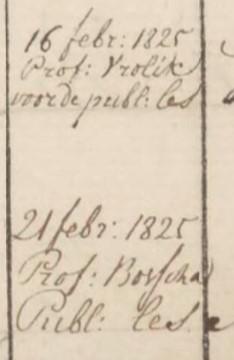 16 febr: 1825
Prof: Vrolik
voor de publ: les
21 febr: 1825
Prof: Bosscha
Publ: les